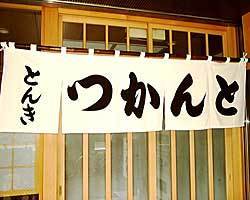 とんかつ
とんき